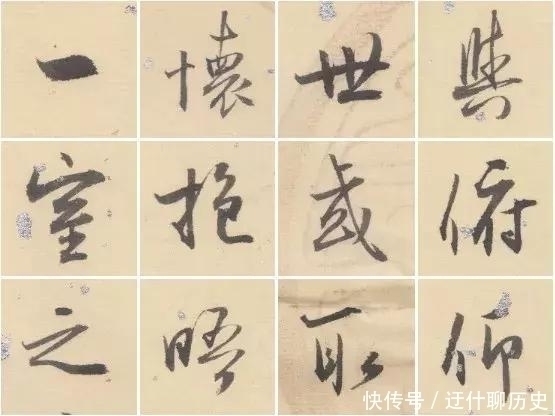 與俯仰
世或取
懷抱晤
一室之
快传号 / 迂什聊历史